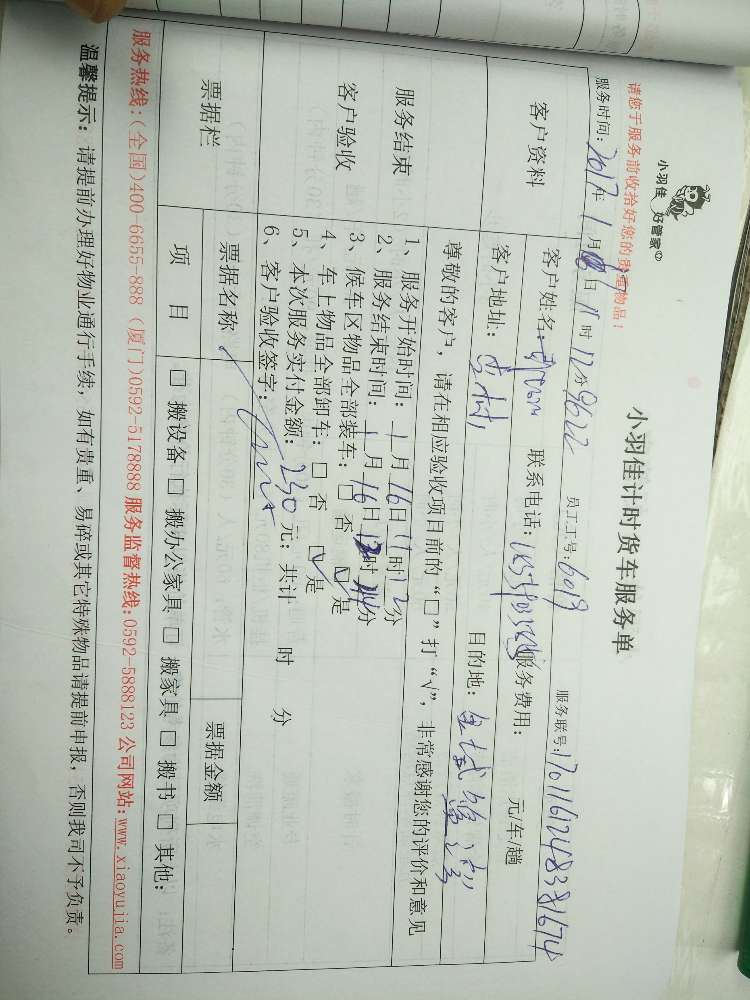 小羽佳 好管家
小羽佳计时货车服务单
请您于服务前收拾好您的贵重物品!
服务时间: 2017年 1月 日 11时 12分 9622 员工工号: 6019 服务联号: 170116124838 1674
客户资料
客户姓名: 联系电话: 服务费用: 元/车/趟
客户地址: 目的地:
尊敬的客户,请在相应验收项目前的“□”打“√”,非常感谢您的评价和意见
服务结束
客户验收
1、服务开始时间: 1月16日11时12分
2、服务结束时间: 1月16日 时 分
3、候车区物品全部装车: □ 否 ☑ 是
4、车上物品全部卸车: □ 否 ☑ 是
5、本次服务实付金额: 230 元; 共计 时 分
6、客户验收签字:
票据栏
票据名称 票据金额
项 目 □ 搬设备 □ 搬办公家具 □ 搬家具 □ 搬书 □ 其他:
服务热线:(全国)400-6655-888 (厦门)0592-5178888 服务监督热线:0592-5888123 公司网站:www.xiaoyujia.com
温馨提示: 请提前办理好物业通行手续, 如有贵重、易碎或其它特殊物品请提前申报, 否则我司不予负责。